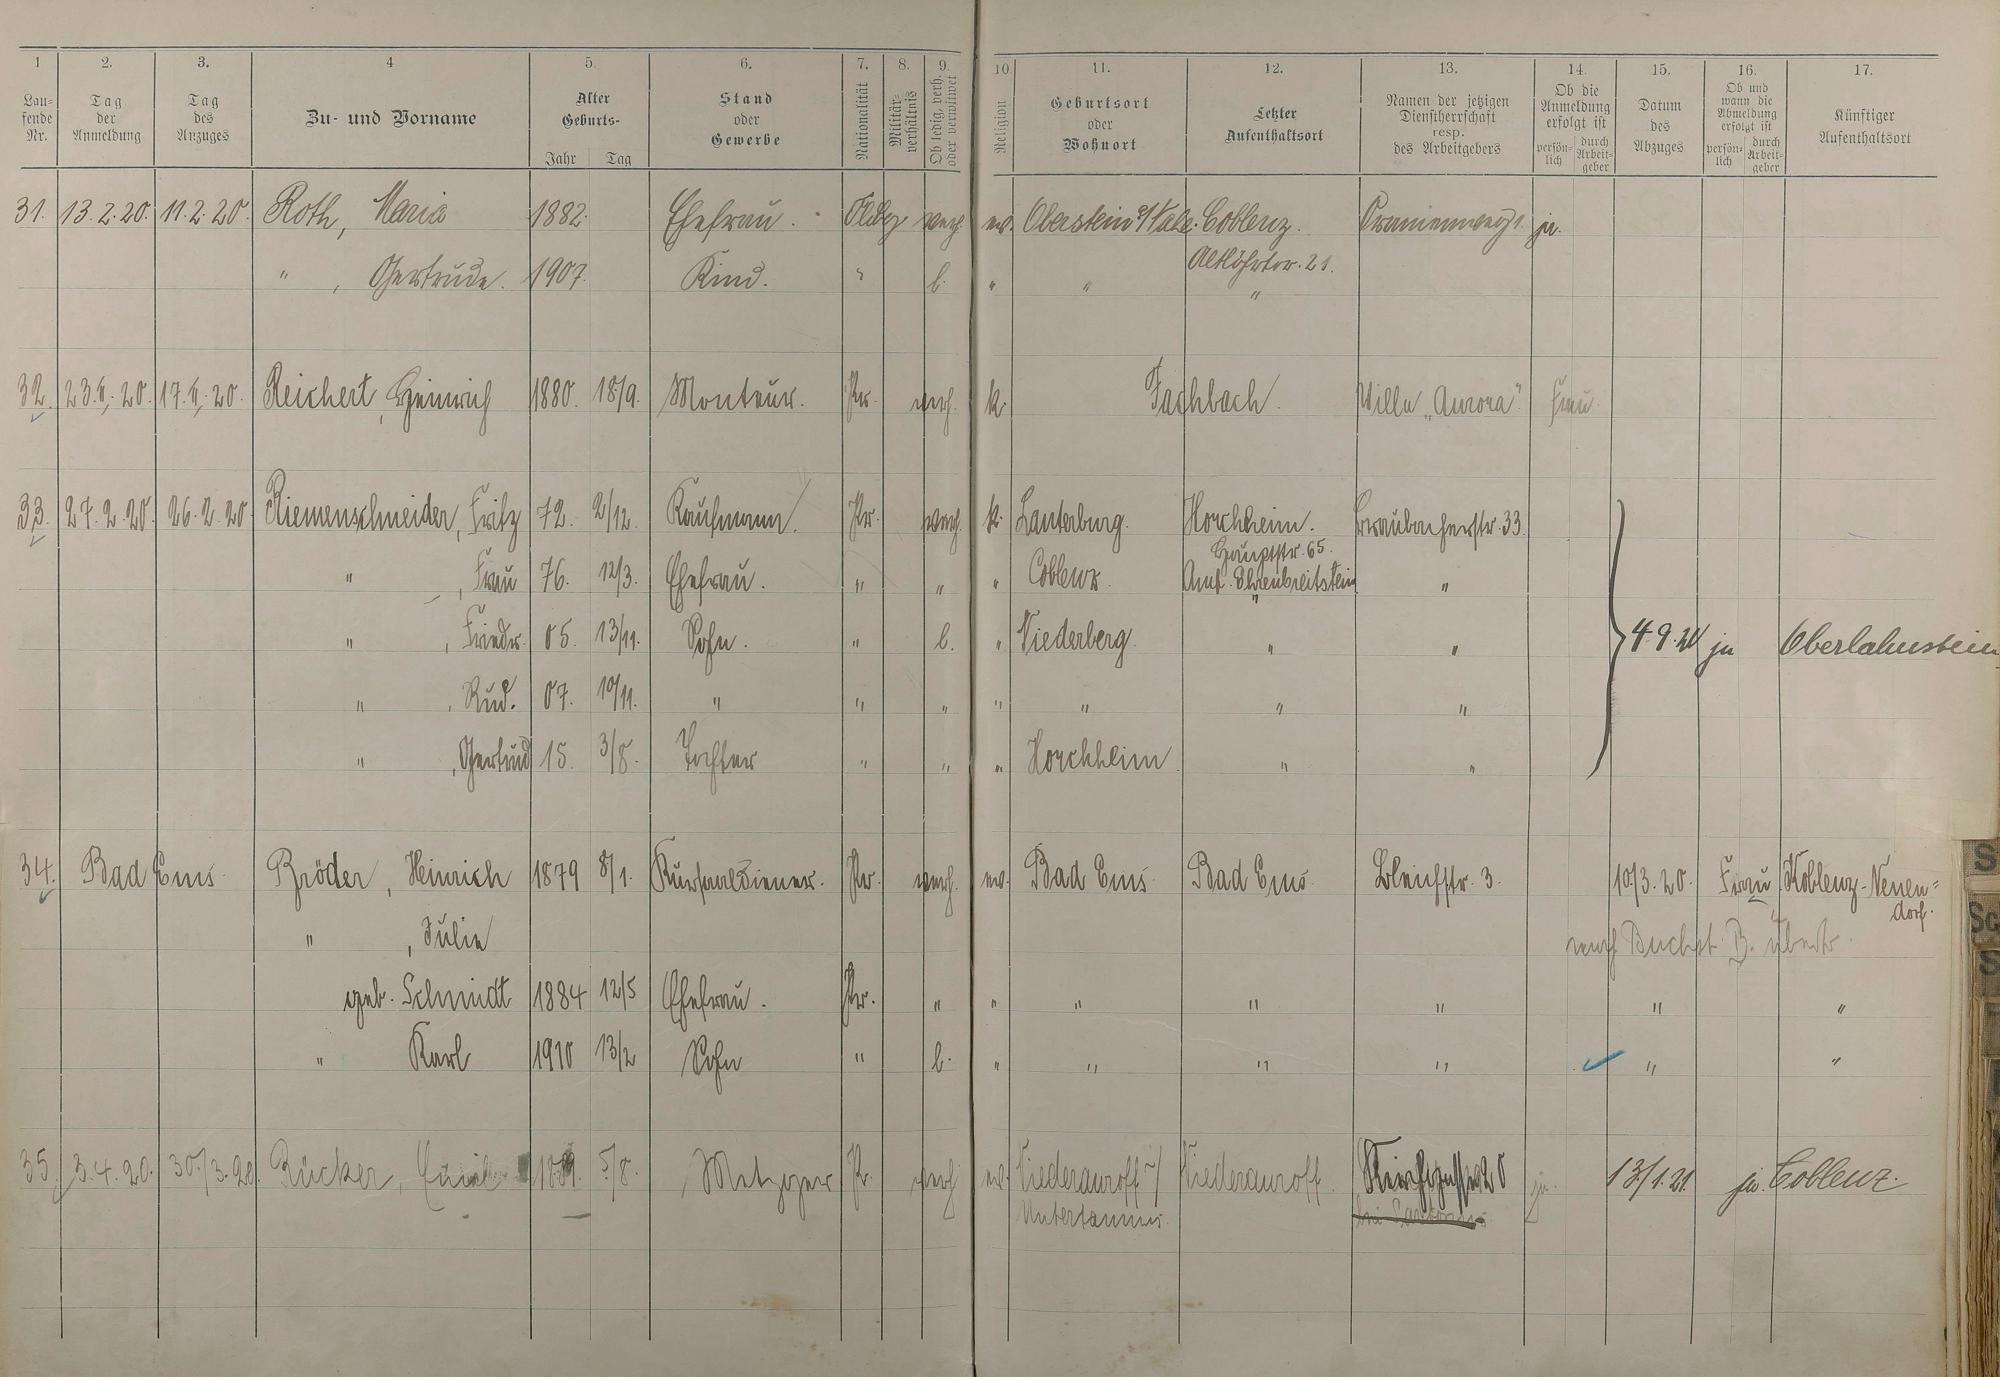 1 2. 3. 4 5. 6. 7. 8. 9. 10. 11. 12. 13. 14. 15. 16. 17.
Lau-
fende
Nr.
Tag
der
Anmeldung
Tag
des
Anzuges
Zu- und Vorname
Alter
Geburts-
Jahr Tag
Stand
oder
Gewerbe
Nationalität
Militär-
verhältnis
Ob ledig, verh.
oder verwitwet
Religion
Geburtsort
oder
Wohnort
Letzter
Aufenthaltsort
Namen der jetzigen
Dienstherrschaft
resp.
des Arbeitgebers
Ob die
Anmeldung
erfolgt ist
persön-
lich
durch
Arbeit-
geber
Datum
des
Abzuges
Ob und
wann die
Abmeldung
erfolgt ist
persön-
lich
durch
Arbeit-
geber
Künftiger
Aufenthaltsort
31. 13.2.20. 11.2.20. Roth, Maria 1882. Ehefrau. Oldbg verh. ev. Oberstein Coblenz. ja.
Altlöhrtor. 21.
" , Gertrude. 1907. Kind. " l. " " "
32. 23.II.20. 17.II.20. Reichert, Heinrich 1880. 18/9. Monteur. Pr. verh. k. Fachbach. Villa „Aurora" Frau
33. 27.2.20. 26.2.20 Riemenschneider, Fritz 72. 2/12. Kaufmann. Pr. verh. k. Lauterburg. Horchheim. Braubacherstr. 33
Hauptstr. 65.
" , Frau 76. 12/3. Ehefrau. " " " Coblenz. Amt Ehrenbreitstein "
" , Friedr. 05. 13/11. Sohn. " l. " Niederberg. " " 4.9.20 ja Oberlahnstein
" , Rud. 07. 10/11. " " " " " " "
" , Gertrud 15. 3/8. Tochter " " " Horchheim. " "
34. Bad Ems Bröder, Heinrich 1879 8/1. Kursaaldiener. Pr. verh. ev. Bad Ems Bad Ems Bleichstr. 3. 10/3.20. Frau Koblenz-Neuen=
dorf.
" , Julie nach Buchst. B. übertr.
geb. Schmidt 1884 12/5 Ehefrau. Pr. " " " " " " "
" Karl 1910 13/2 Sohn " l. " " " " " "
35. 3.4.20. 30/3.20. Rücker, Emil 5/8. Metzger Pr. verh. ev. Niederauroff i/ Niederauroff. 20 ja. 13/1.21. ja. Coblenz.
Untertaunus. bei